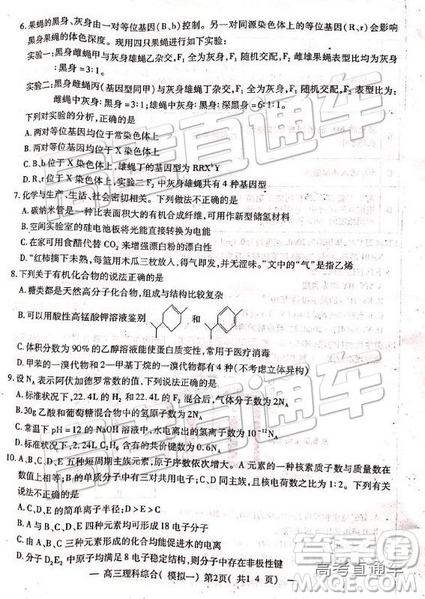 6.果蝇的黑身、灰身由一对等位基因(B、b)控制。另一对同源染色体上的等位基因(R、r)会影响
黑身果蝇的体色深度。现用四只果蝇进行如下实验:
实验一:黑身雌蝇甲与灰身雄蝇乙杂交,F₁ 全为灰身,F₁ 随机交配,F₂ 雌雄果蝇表型比均为灰身
:黑身=3:1。
实验二:黑身雌蝇丙(基因型同甲)与灰身雄蝇丁杂交,F₁ 全为灰身,F₁ 随机交配,F₂ 表型比为:
雌蝇中灰身:黑身=3:1;雄蝇中灰身:黑身:深黑身=6:1:1。
下列对实验的分析,正确的是
A.两对等位基因均位于常染色体上
B.两对等位基因均位于 X 染色体上
C.B、b 位于 X 染色体上,雄蝇丁的基因型为 RRXᴮY
D.R、r 位于 X 染色体上,实验二 F₂ 中灰身雄蝇共有 4 种基因型
7.化学与生产、生活、社会密切相关。下列做法不正确的是
A.碳纳米管是一种比表面积大的有机合成纤维,可用作新型储氢材料
B.空间实验室的硅电池板将光能直接转换为电能
C.在家可用食醋代替 CO₂ 来增强漂白粉的漂白性
D.“红柿摘下未熟,每篮用木瓜三枚放入,得气即发,并无涩味。”文中的“气”是指乙烯
8.下列关于有机化合物的说法正确的是
A.糖类都是天然高分子化合物,组成与结构比较复杂
B.可以用酸性高锰酸钾溶液鉴别 和
C.体积分数为 90% 的乙醇溶液能使蛋白质变性,常用于医疗消毒
D.甲苯的一溴代物和 2—甲基丁烷的一溴代物都有 4 种(不考虑立体异构)
9.设 Nₐ 表示阿伏加德罗常数的值,下列说法正确的是
A.标准状况下,22.4L F₂ 和 22.4L H₂ 混合后,气体分子数为 2Nₐ
B.30g 乙酸和葡萄糖混合物中的氢原子数为 2Nₐ
C.常温下 pH=12 的 NaOH 溶液中,水电离出的氢离子数为 10⁻¹²Nₐ
D.标准状况下,2.24L C₂H₆ 含有的共价键数为 0.6Nₐ
10.A、B、C、D、E 五种短周期主族元素,原子序数依次增大。A 元素的一种核素质子数与质量数在
数值上相等;B 的单质分子中有三对共用电子;C、D 同主族,且核电荷数之比为 1:2。下列有关
说法不正确的是
A.C、D、E 的简单离子半径:D>E>C
B.A 与 B、C、D、E 四种元素均可形成 18 电子分子
C.由 A、B、C 三种元素形成的化合物一定为共价化合物
D.分子 D₂E₂ 中原子均满足 8 电子稳定结构,则分子中存在非极性键
— 高三理科综合( 模拟一) 第2页( 共1 4 页) —
高考直通车
高考直通车
答案圈